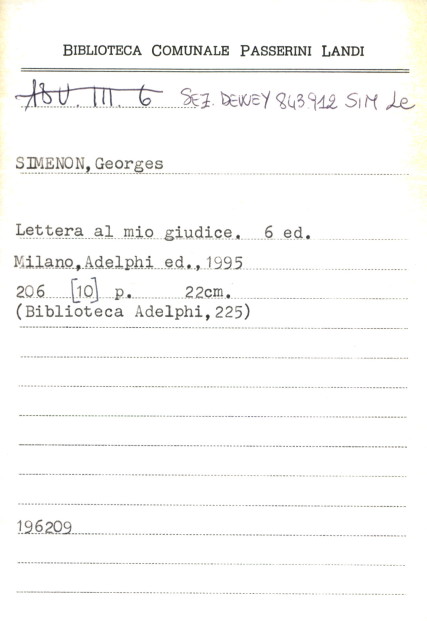 BIBLIOTECA COMUNALE PASSERINI LANDI
ABU. III. 6 SEZ. DEWEY 843.912 SIM Le
SIMENON, Georges
Lettera al mio giudice. 6 ed.
Milano, Adelphi ed., 1995
206 [10] p. 22cm.
(Biblioteca Adelphi, 225)
196209